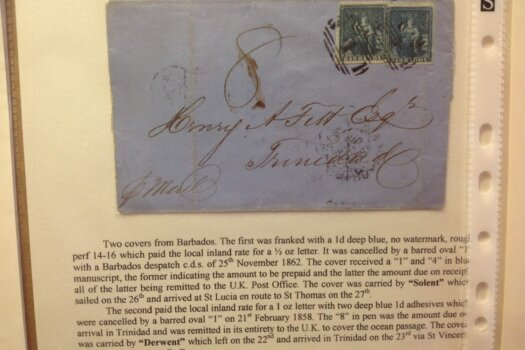 8
BARBADOS BARBADOS
Henry A Fitt Esqr
Trinidad
Two covers from Barbados. The first was franked with a 1d deep blue, no watermark, roug
perf 14-16 which paid the local inland rate for a ½ oz letter. It was cancelled by a barred oval "1"
with a Barbados despatch c.d.s. of 25th November 1862. The cover received a "1" and "4" in blue
manuscript, the former indicating the amount to be prepaid and the latter the amount due on receip
all of the latter being remitted to the U.K. Post Office. The cover was carried by "Solent" whic
sailed on the 26th and arrived at St Lucia en route to St Thomas on the 27th
The second paid the local inland rate for a 1 oz letter with two deep blue 1d adhesives whic
were cancelled by a barred oval "1" on 21st February 1858. The "8" in pen was the amount due o
arrival in Trinidad and was remitted in its entirety to the U.K. to cover the ocean passage. The cove
was carried by "Derwent" which left on the 22nd and arrived in Trinidad on the 23rd via St Vincen